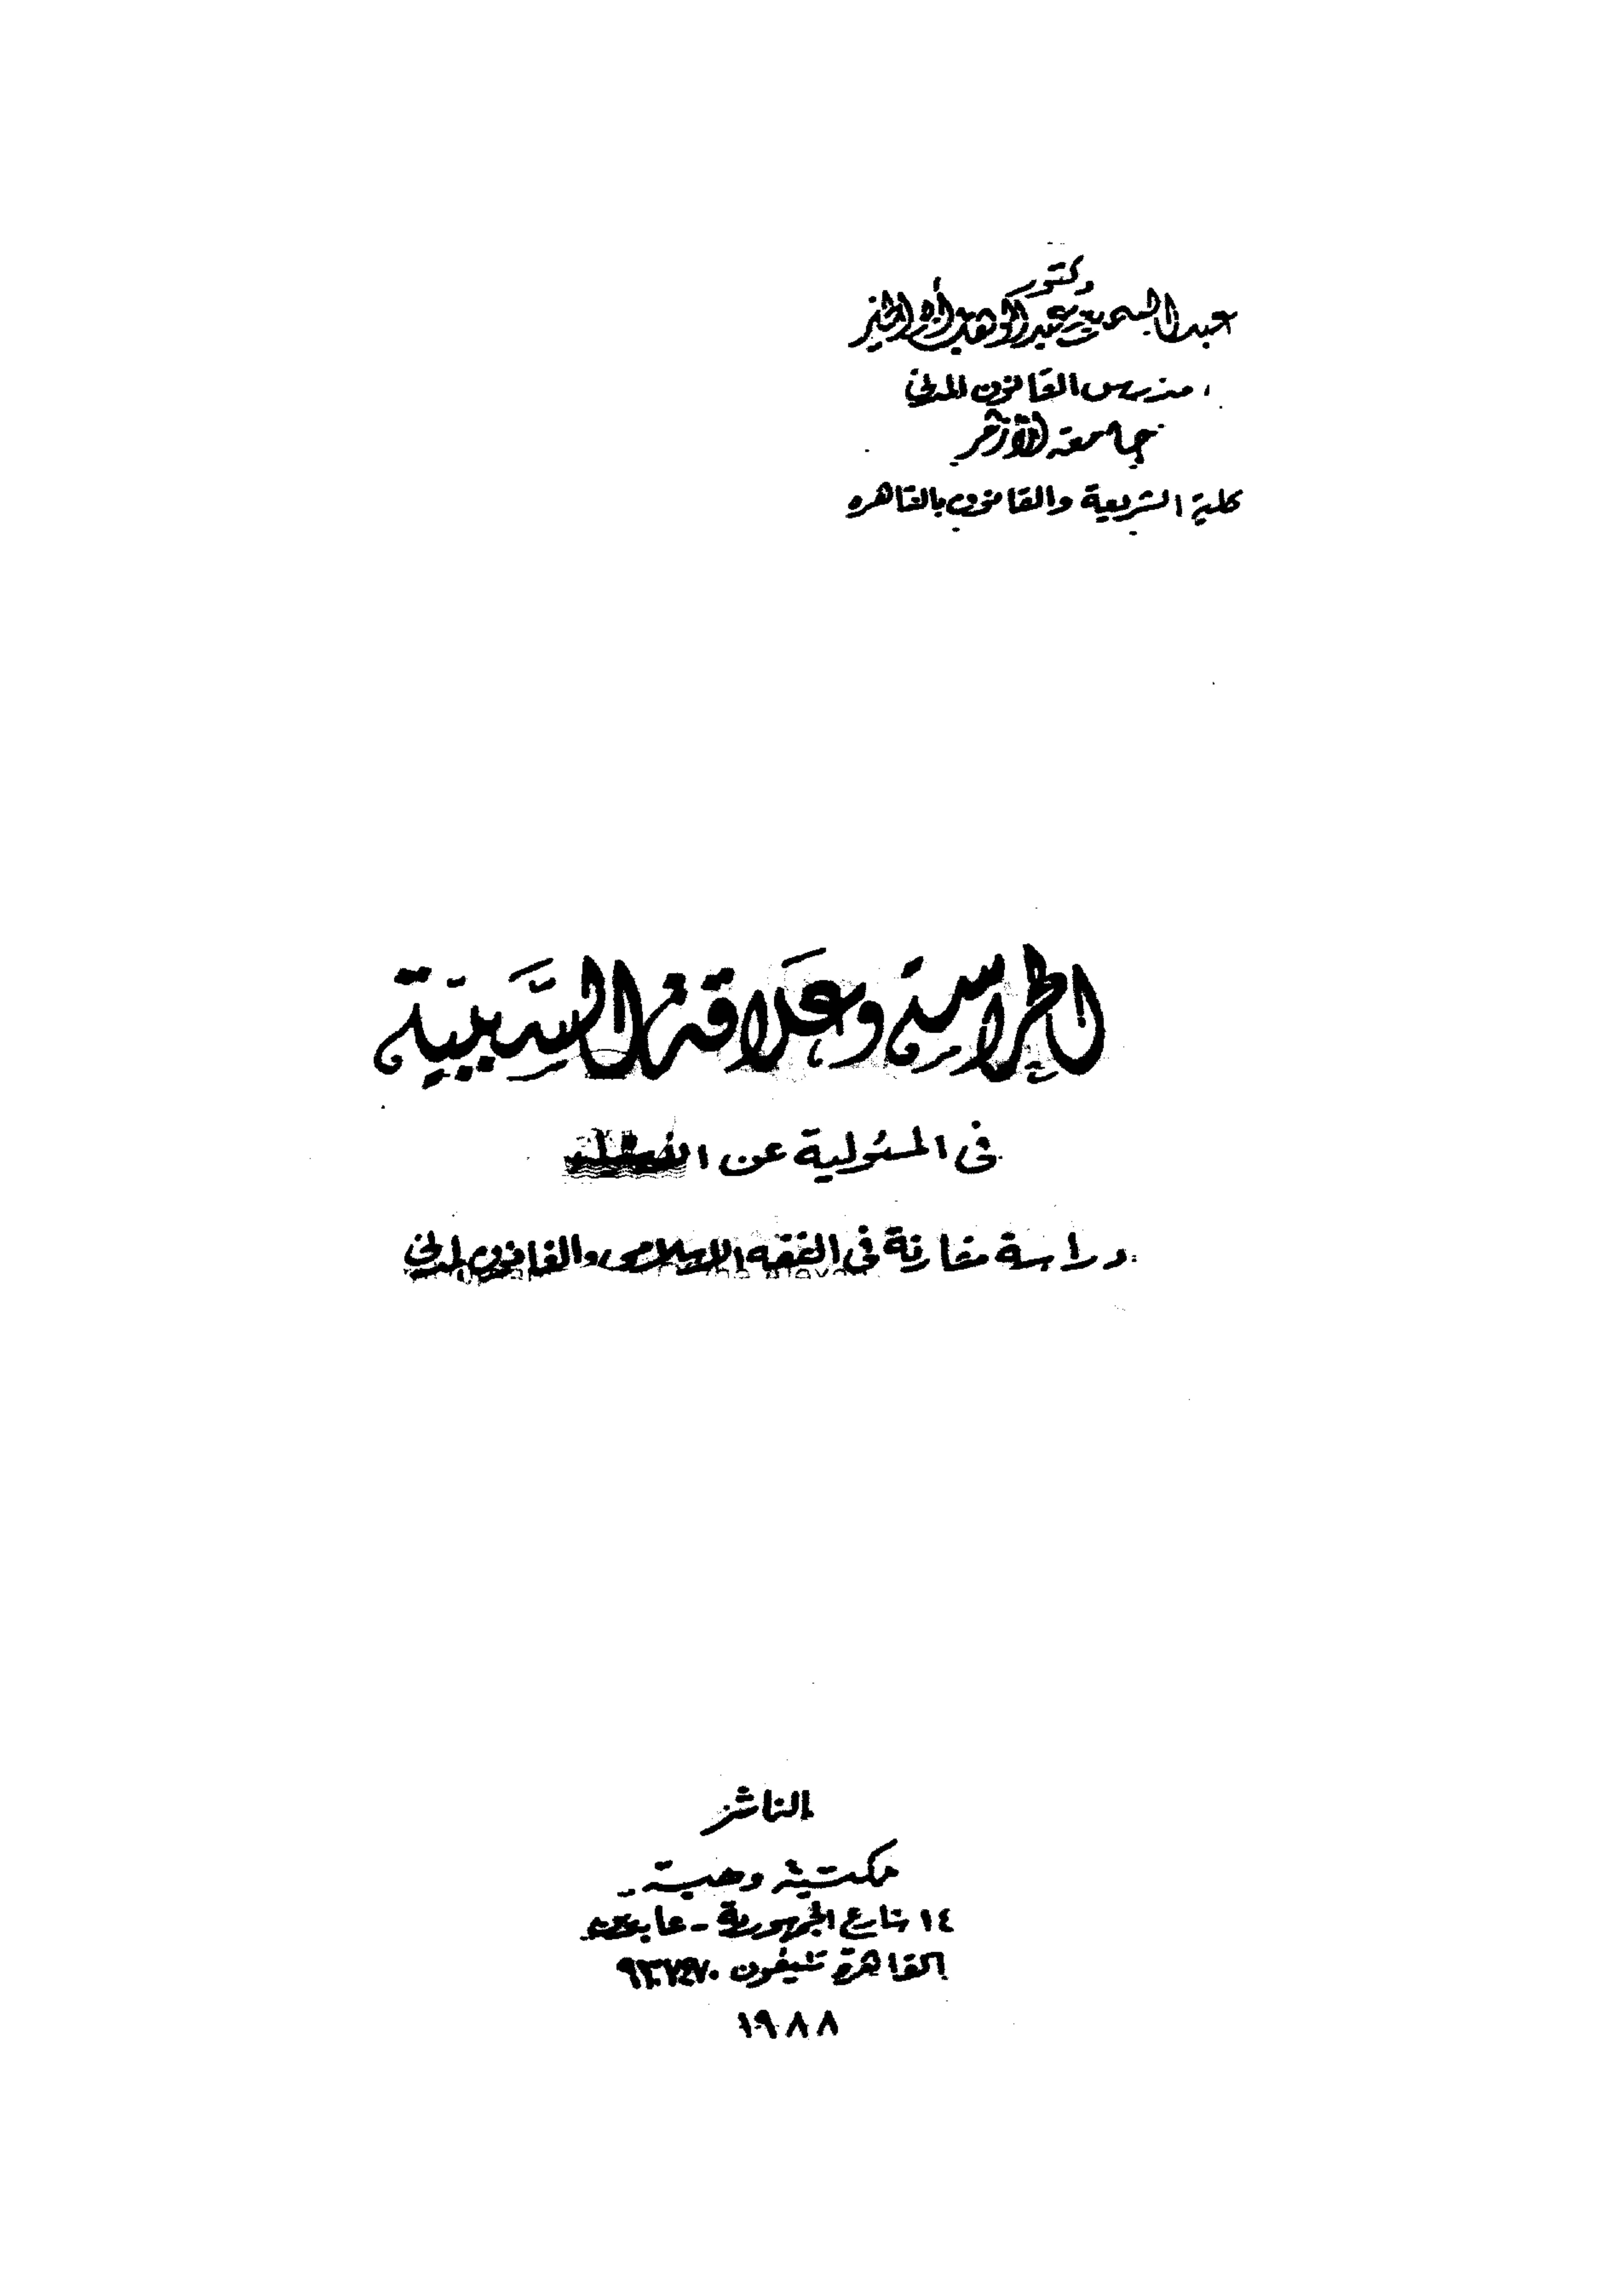 دكتور
عبد السميع عبد الوهاب أبو الخير
مدرس القانون المدني
جامعة الأزهر
كلية الشريعة والقانون بالقاهرة
الحراسة وعلاقة السَّببيَّة
فى المسئولية عن الأشياء
دراسة مقارنة فى الفقه الإسلامى والقانون المدني
الناشر
مكتبة وهبة
١٤ شارع الجمهورية - عابدين
القاهرة تليفون
١٩٨٨